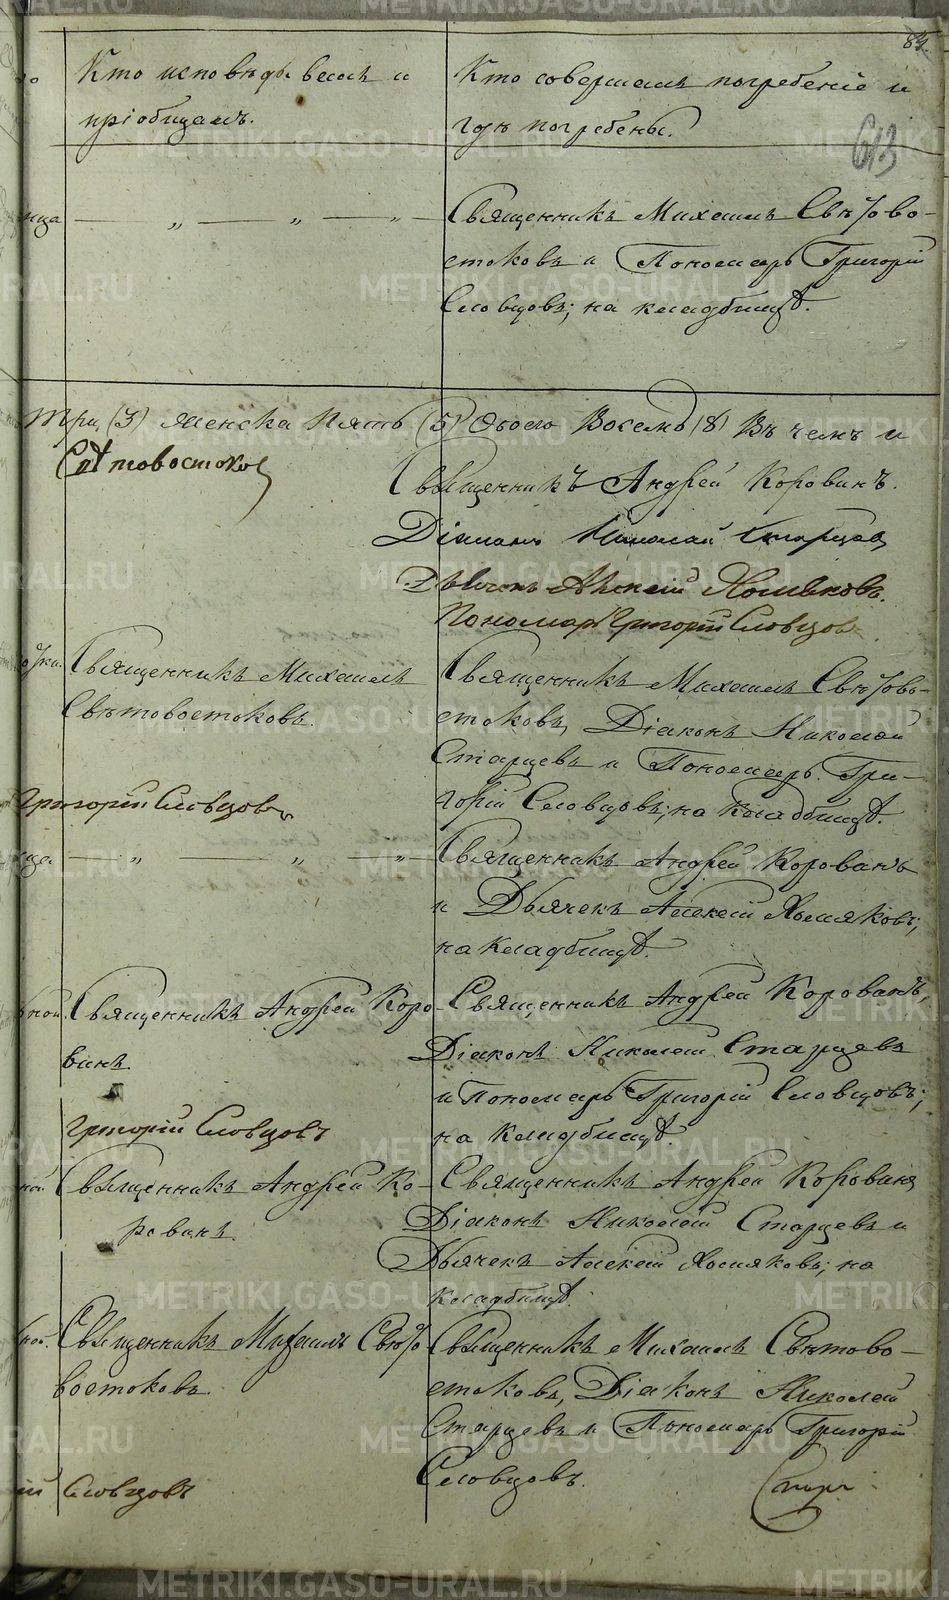 84.
Кто исповѣдывалъ и
пріобщалъ.
Кто совершалъ погребеніе и
гдѣ погребены.
613
ница — „ — „ — „ —
Священникъ Михаилъ Свѣтово-
стоковъ и Пономарь Григорій
Словцовъ; на кладбищѣ.
три (3) женска пять (5) Обоего Восемь (8) Въ чемъ и
Свѣтовостоковъ
Священникъ Андрей Коровинъ.
Діаконъ Николай Старцевъ
Дьячекъ Алексій Хомяковъ.
Пономарь Григорій Словцовъ.
Священникъ Михаилъ
Свѣтовостоковъ.
Священникъ Михаилъ Свѣтово-
стоковъ, Діаконъ Николай
Старцевъ и Пономарь Гри-
горій Словцовъ; на кладбищѣ.
Григорій Словцовъ
— „ — „ — „ —
Священникъ Андрей Коровинъ
и Дьячекъ Алексій Хомяковъ;
на кладбищѣ.
Священникъ Андрей Коро-
винъ.
Священникъ Андрей Коровинъ,
Діаконъ Николай Старцевъ
и Пономарь Григорій Словцовъ;
на кладбищѣ.
Григорій Словцовъ
Священникъ Андрей Ко-
ровинъ.
Священникъ Андрей Коровинъ
Діаконъ Николай Старцевъ и
Дьячекъ Алексій Хомяковъ; на
кладбищѣ.
Священникъ Михаилъ Свѣто-
востоковъ.
Священникъ Михаилъ Свѣтово-
стоковъ, Діаконъ Николай
Старцевъ и Пономарь Григорій
Словцовъ.
ій Словцовъ
METRIKI.GASO-URAL.RU